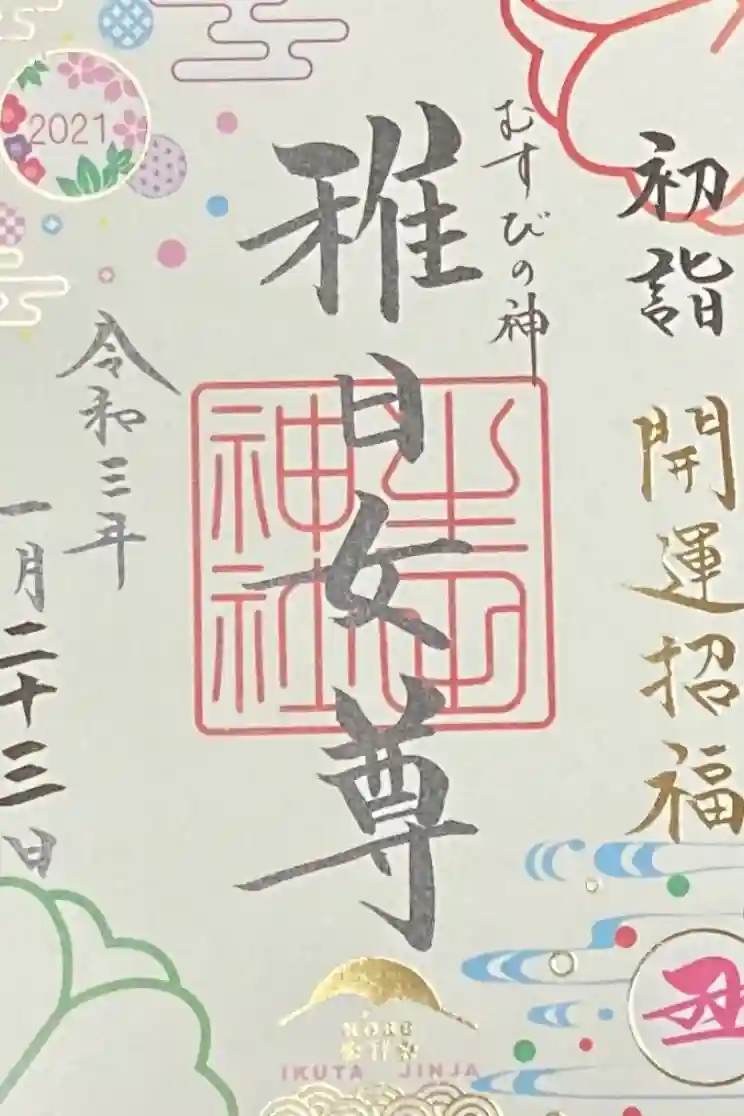 初詣 開運招福
丑
むすびの神
稚日女尊
生田神社
KOBE
IKUTA JINJA
2021
令和三年
一月二十三日